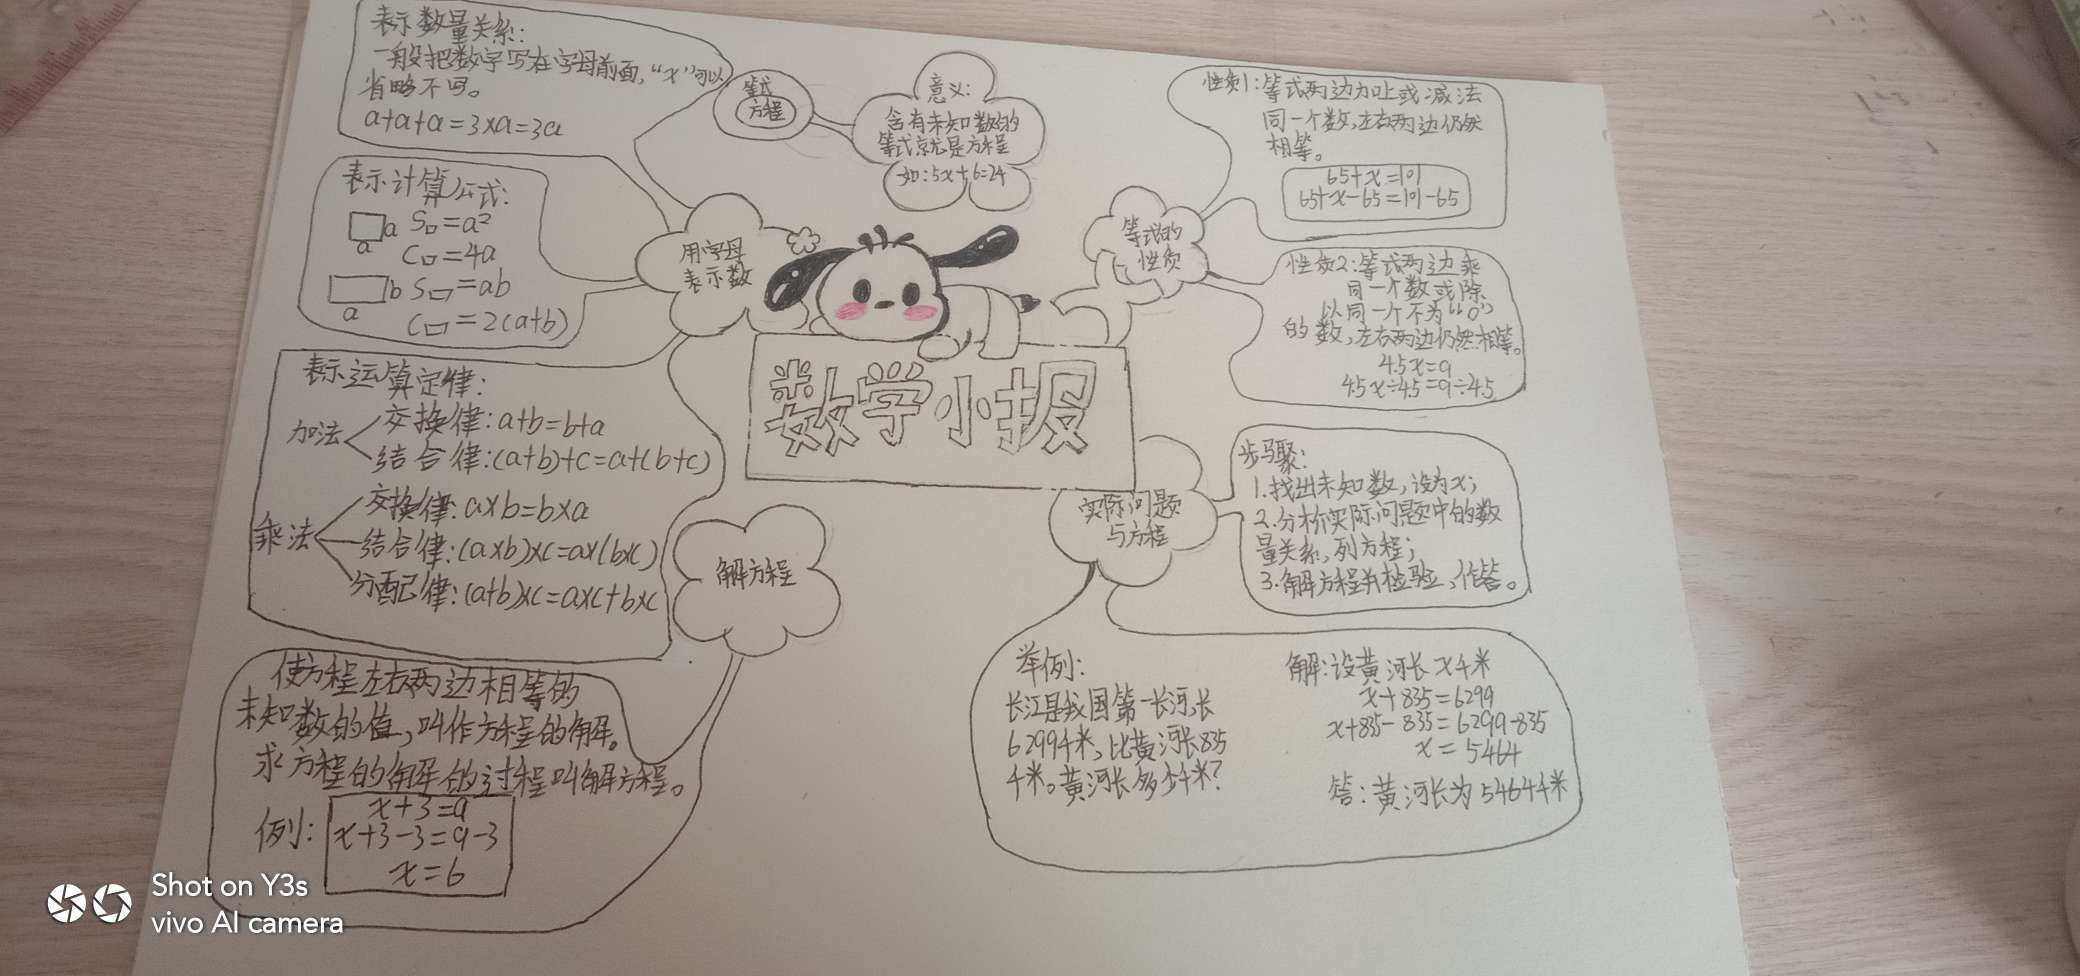 表示数量关系:
一般把数字写在字母前面,“×”可以
省略不写。
a+a+a=3×a=3a
表示计算公式:
a S□=a²
a C□=4a
b S▭=ab
a C▭=2(a+b)
表示运算定律:
加法
交换律:a+b=b+a
结合律:(a+b)+c=a+(b+c)
乘法
交换律:a×b=b×a
结合律:(a×b)×c=a×(b×c)
分配律:(a+b)×c=a×c+b×c
用字母
表示数
等式
方程
意义:
含有未知数的
等式就是方程
如:5x+6=24
等式的
性质
性质1:等式两边加上或减法
同一个数,左右两边仍然
相等。
65+x=101
65+x-65=101-65
性质2:等式两边乘
同一个数或除
以同一个不为“0”
的数,左右两边仍然相等。
4.5x=9
4.5x÷4.5=9÷4.5
数学小报
解方程
使方程左右两边相等的
未知数的值,叫作方程的解。
求方程的解的过程叫解方程。
例:
x+3=9
x+3-3=9-3
x=6
实际问题
与方程
步骤:
1.找出未知数,设为x;
2.分析实际问题中的数
量关系,列方程;
3.解方程并检验,作答。
举例:
长江是我国第一长河,长
6299千米,比黄河长835
千米。黄河长多少千米?
解:设黄河长x千米
x+835=6299
x+835-835=6299-835
x=5464
答:黄河长为5464千米
Shot on Y3s
vivo AI camera